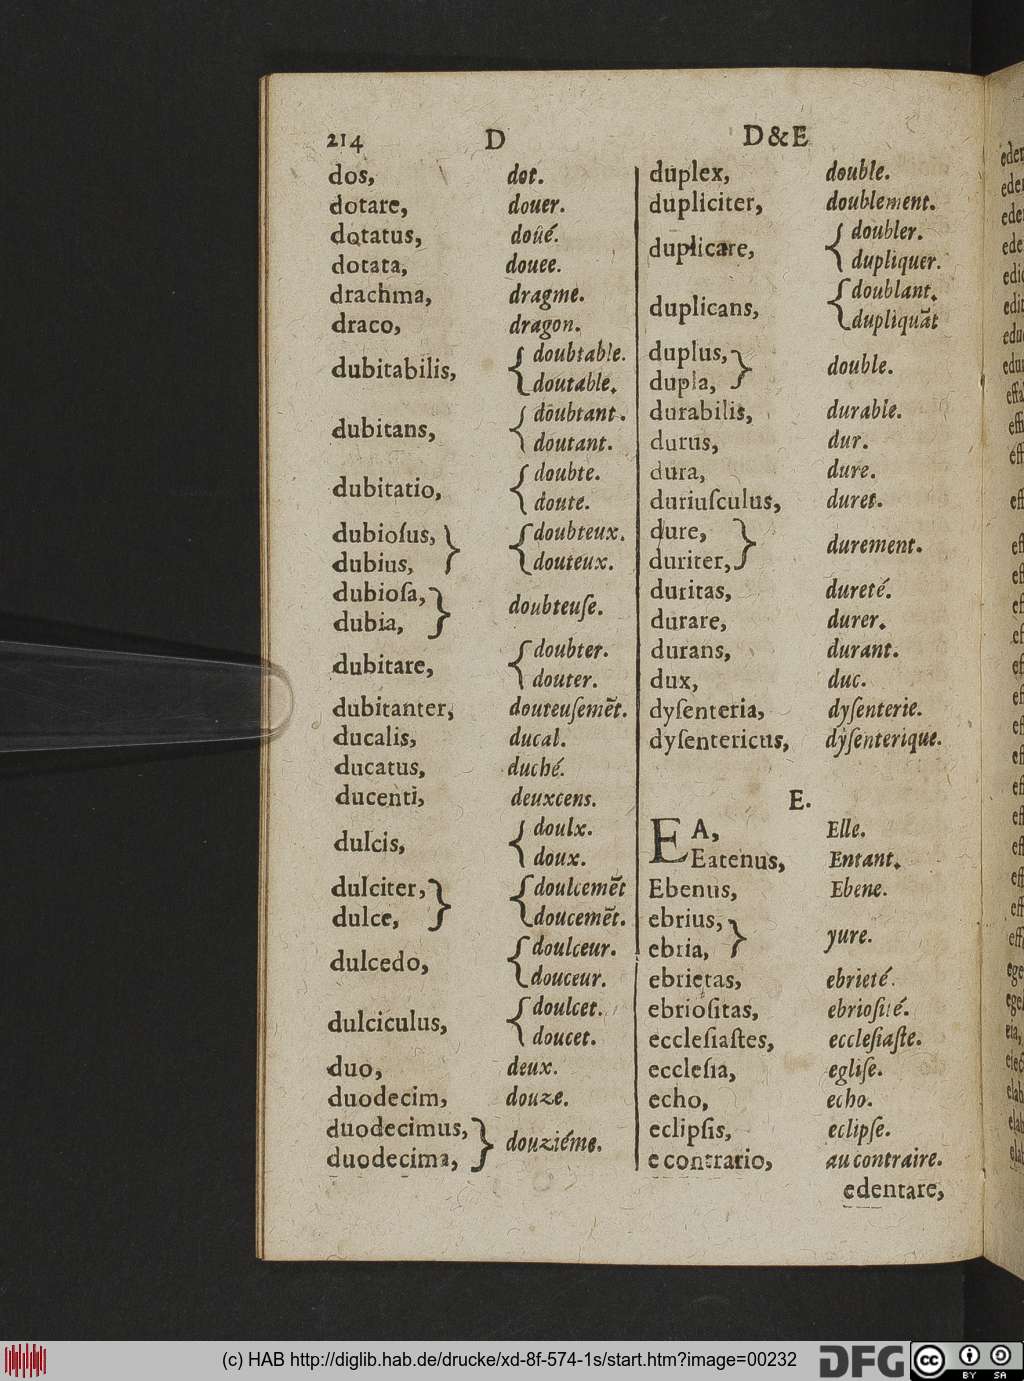 214 D D & E
dos, dot.
dotare, douer.
dotatus, doûé.
dotata, douee.
drachma, dragme.
draco, dragon.
dubitabilis, { doubtable.
doutable.
dubitans, { doubtant.
doutant.
dubitatio, { doubte.
doute.
dubioſus, } { doubteux.
dubius, douteux.
dubioſa, } doubteuſe.
dubia,
dubitare, { doubter.
douter.
dubitanter, douteuſemẽt.
ducalis, ducal.
ducatus, duché.
ducenti, deuxcens.
dulcis, { doulx.
doux.
dulciter, } { doulcemẽt
dulce, doucemẽt.
dulcedo, { doulceur.
douceur.
dulciculus, { doulcet.
doucet.
duo, deux.
duodecim, douze.
duodecimus, } douziéme.
duodecima,
duplex, double.
dupliciter, doublement.
duplicare, { doubler.
dupliquer.
duplicans, { doublant.
dupliquãt
duplus, } double.
dupla,
durabilis, durable.
durus, dur.
dura, dure.
duriuſculus, duret.
dure, } durement.
duriter,
duritas, dureté.
durare, durer.
durans, durant.
dux, duc.
dyſenteria, dyſenterie.
dyſentericus, dyſenterique.
E.
EA, Elle.
Eatenus, Entant.
Ebenus, Ebene.
ebrius, } yure.
ebria,
ebrietas, ebrieté.
ebrioſitas, ebrioſité.
eccleſiaſtes, eccleſiaſte.
eccleſia, egliſe.
echo, echo.
eclipſis, eclipſe.
e contrario, au contraire.
edentare,
(c) HAB http://diglib.hab.de/drucke/xd-8f-574-1s/start.htm?image=00232 DFG cc BY SA